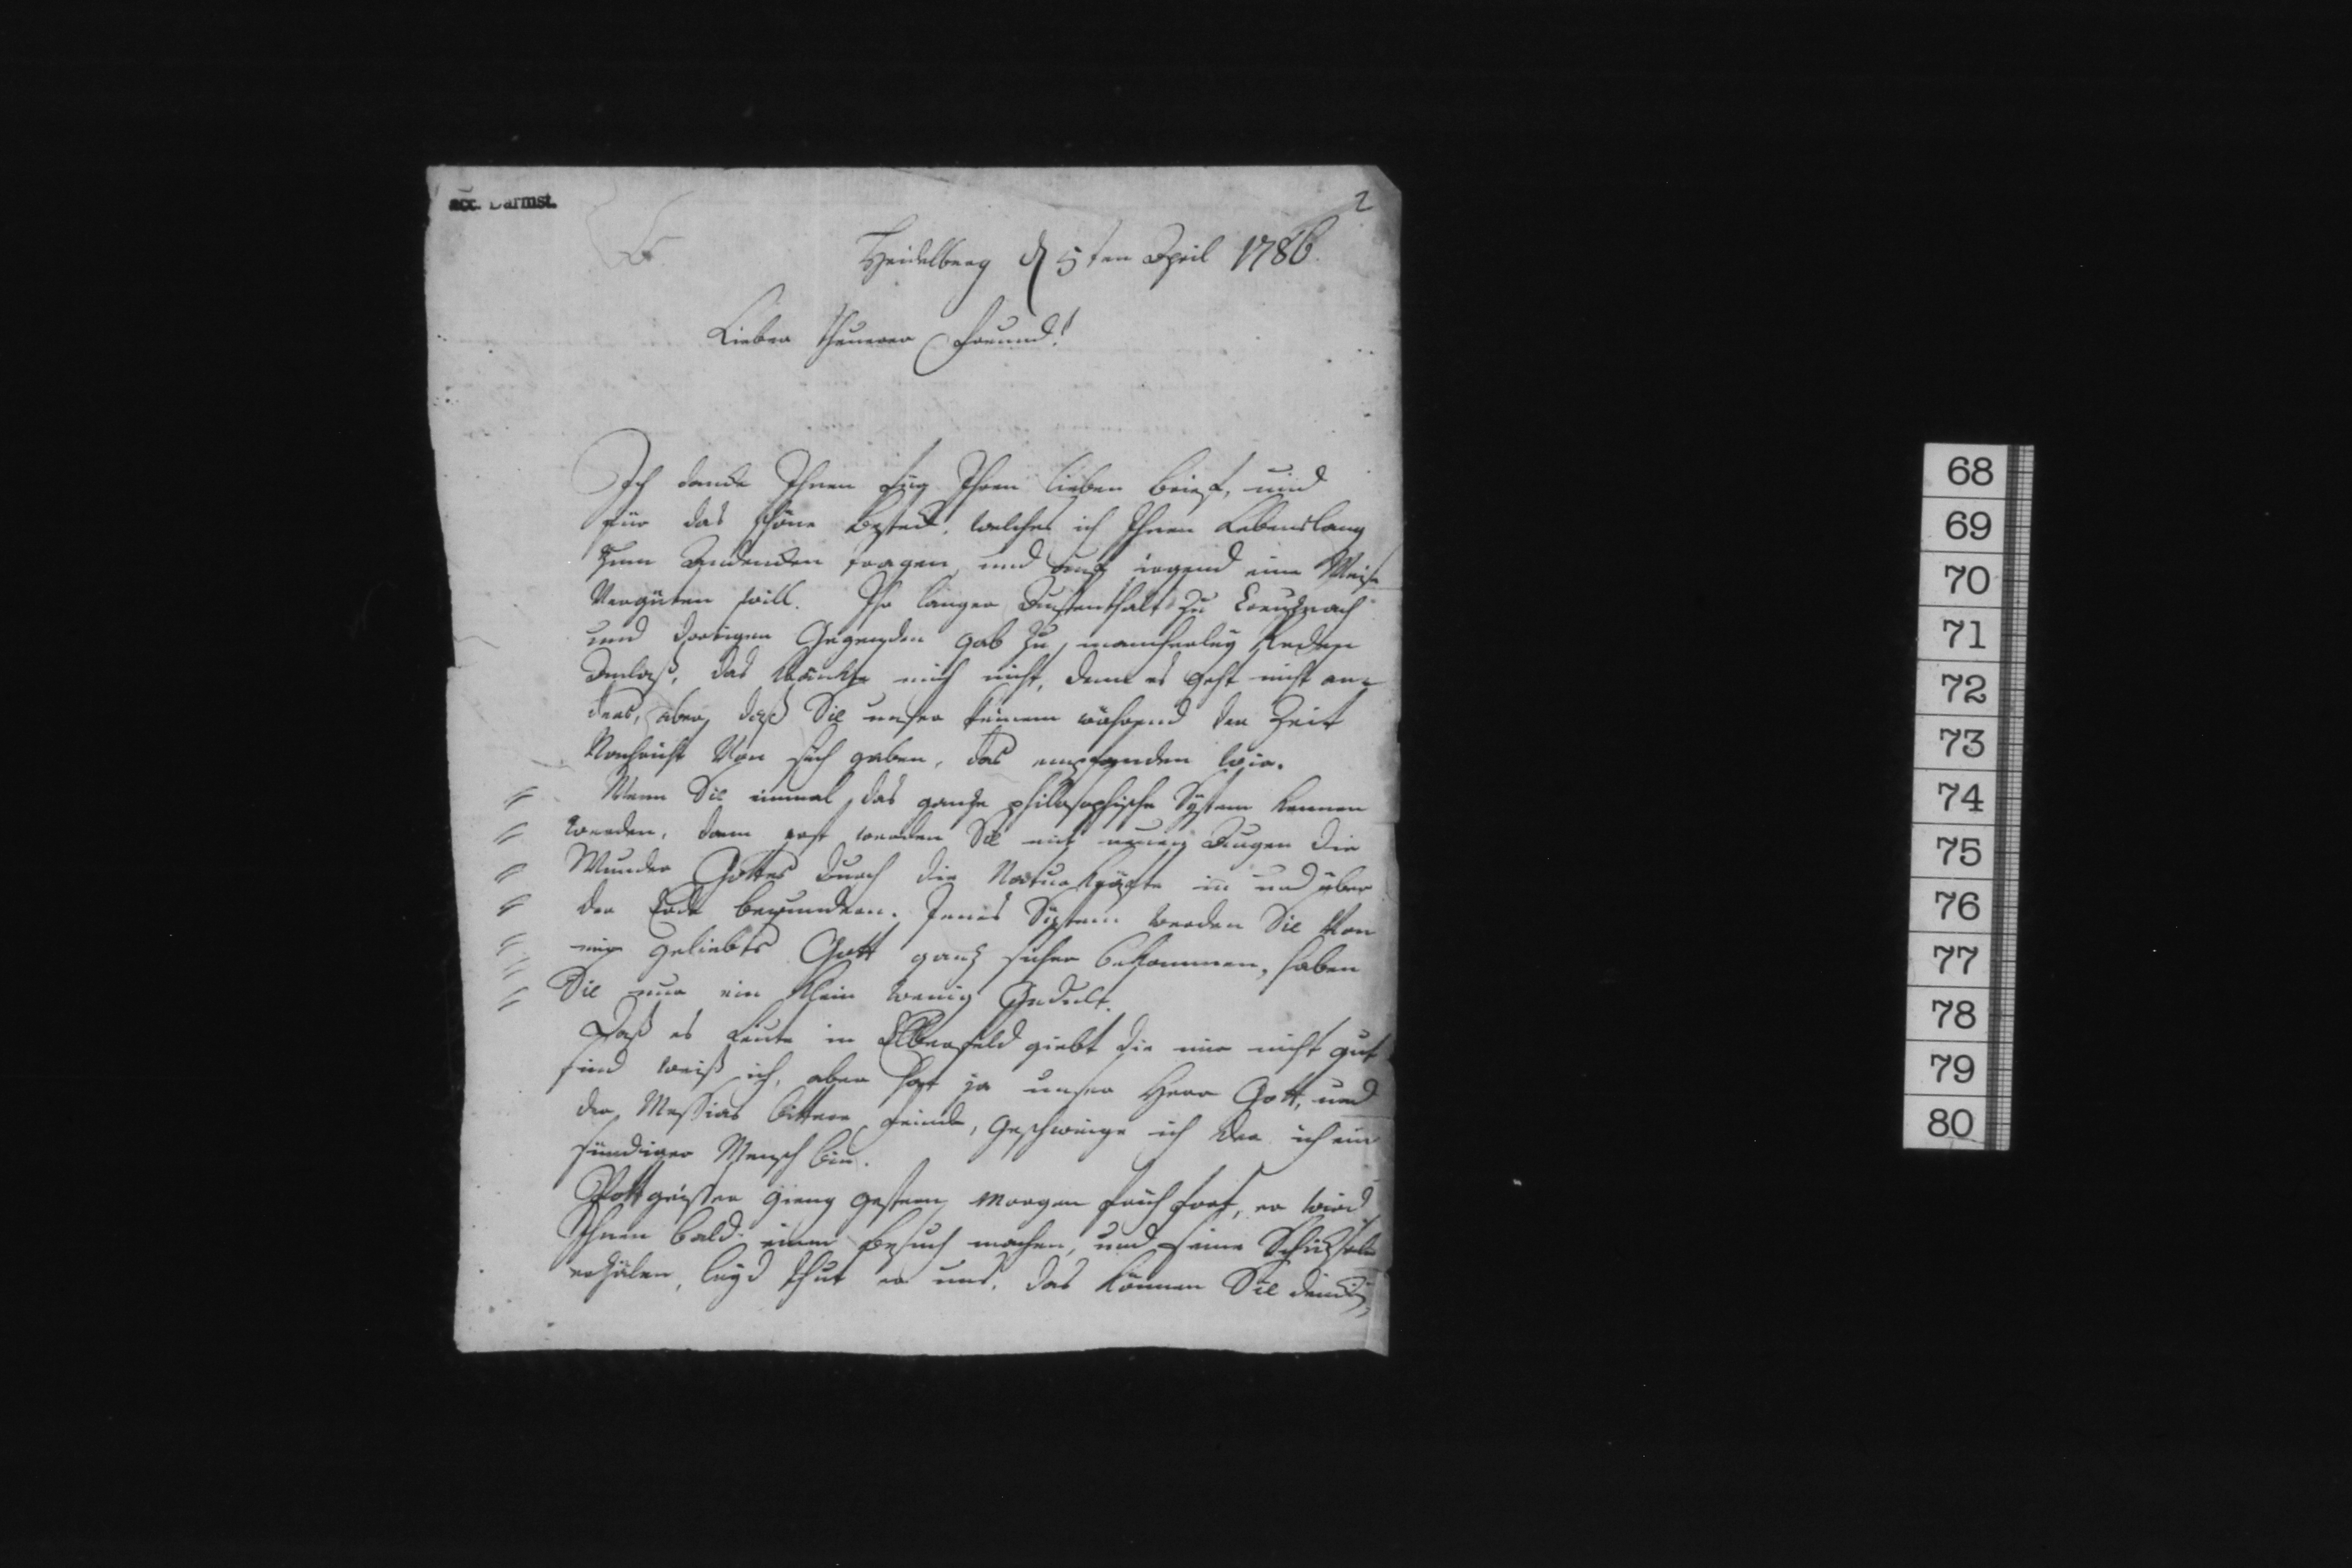 acc. Darmst.
2
Heidelberg d 5ten April 1786.
Lieber theurer Freund!
Ich dancke Ihnen für Ihren lieben brief, und
für das schöne besteck, welches ich Ihnen Lebenslang
zum Andencken tragen, und auf irgend eine Weise
Vergüten will. Ihr langer Aufenthalt zu Creuznach
und dortigen Gegenden gab zu mancherley Reden
Anlaß, das kränckte mich nicht, denn es geht nicht an-
ders, aber daß Sie unser keinem während der Zeit
Nachricht Von sich gaben, das empfanden wir.
Wenn Sie einmal das ganze philosophische System kennen
werden, dann erst werden Sie mit neuen Augen die
Wunder Gottes durch die Naturkräfte in und über
der Erde bewundern. Jenes System werden Sie Von
mir geliebts Gott ganz sicher bekommen, haben
Sie nur ein klein wenig Gedult.
Daß es Leute in Elberfeld giebt die mir nicht gut
sind weiß ich, aber hat ja unser Herr Gott, und
der Messias bittere Feinde, Geschweige ich der ich ein
sündiger Mensch bin.
Pottgießer gieng gestern Morgen früh fort, er wird
Ihnen bald einen besuch machen, und seine Schicksale
erzälen, leyd thut er uns, das können Sie dencken,
68
69
70
71
72
73
74
75
76
77
78
79
80